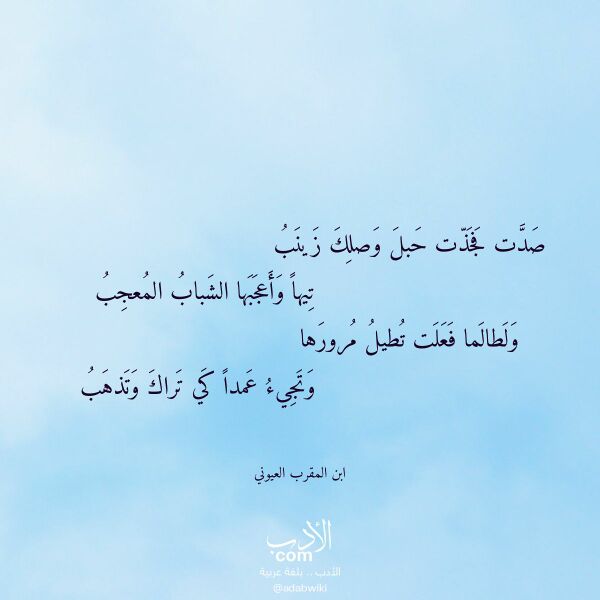 صَدَّت فَجَذّت حَبلَ وَصلِكَ زَينَبُ
تِيهاً وَأَعجَبَها الشَبابُ المُعجِبُ
وَلَطالَما فَعَلَت تُطيلُ مُرورَها
وَتَجِيءُ عَمداً كَي تَراكَ وَتَذهَبُ
ابن المقرب العيوني
الأدب
.com
الأدب .. بلغة عربية
@adabwiki